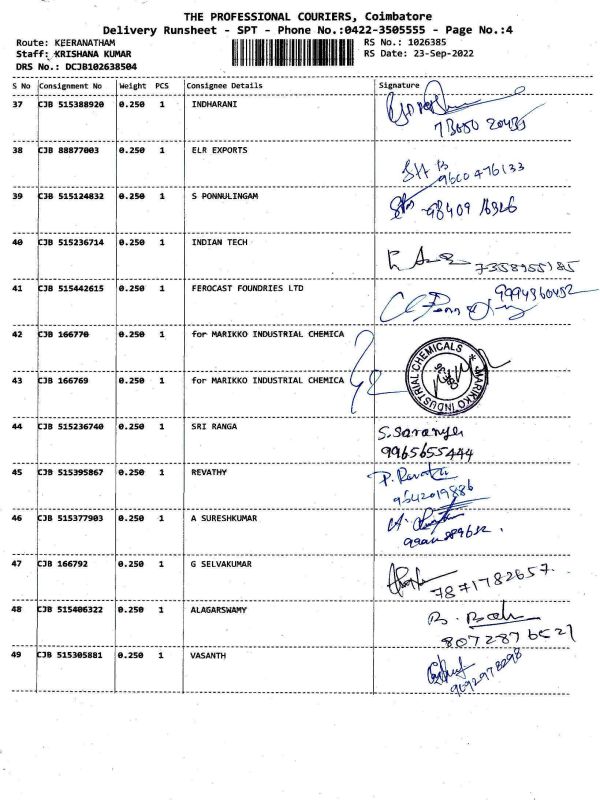 THE PROFESSIONAL COURIERS, Coimbatore
Delivery Runsheet - SPT - Phone No.:0422-3505555 - Page No.:4
Route: KEERANATHAM RS No.: 1026385
Staff: KRISHANA KUMAR RS Date: 23-Sep-2022
DRS No.: DCJB102638504
S No Consignment No Weight PCS Consignee Details Signature
37 CJB 515388920 0.250 1 INDHARANI
38 CJB 88877003 0.250 1 ELR EXPORTS
9600476133
39 CJB 515124832 0.250 1 S PONNULINGAM
98409 16326
40 CJB 515236714 0.250 1 INDIAN TECH
7358955185
41 CJB 515442615 0.250 1 FEROCAST FOUNDRIES LTD
9994360452
42 CJB 166770 0.250 1 for MARIKKO INDUSTRIAL CHEMICA
MARIKKO INDUSTRIAL CHEMICALS
43 CJB 166769 0.250 1 for MARIKKO INDUSTRIAL CHEMICA
44 CJB 515236740 0.250 1 SRI RANGA
S. Saranya
9965655444
45 CJB 515395867 0.250 1 REVATHY
P. Revathi
9542019886
46 CJB 515377903 0.250 1 A SURESHKUMAR
47 CJB 166792 0.250 1 G SELVAKUMAR
7871782657.
48 CJB 515406322 0.250 1 ALAGARSWAMY
8072876521
49 CJB 515305881 0.250 1 VASANTH
9092978298